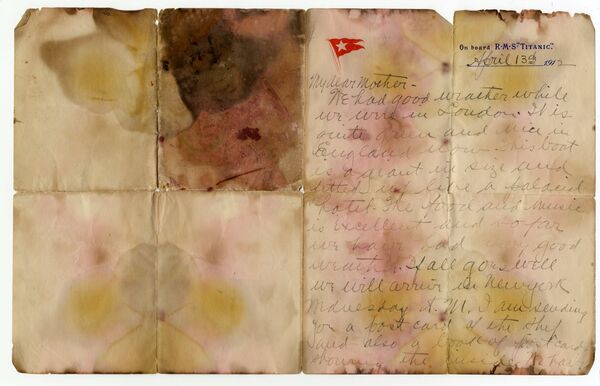 On board R.M.S. "TITANIC."
April 13th 1912
My dear Mother-
We had good weather while
we were in London. It is
quite green and nice in
England now. This boat
is a giant in size and
fitted up like a palacial
hotel. The food and music
is excellent and so far
we have had very good
weather. If all goes well
we will arrive in New York
Wednesday A.M. I am sending
you a post card of the ship
and also a book of post cards
showing the inside